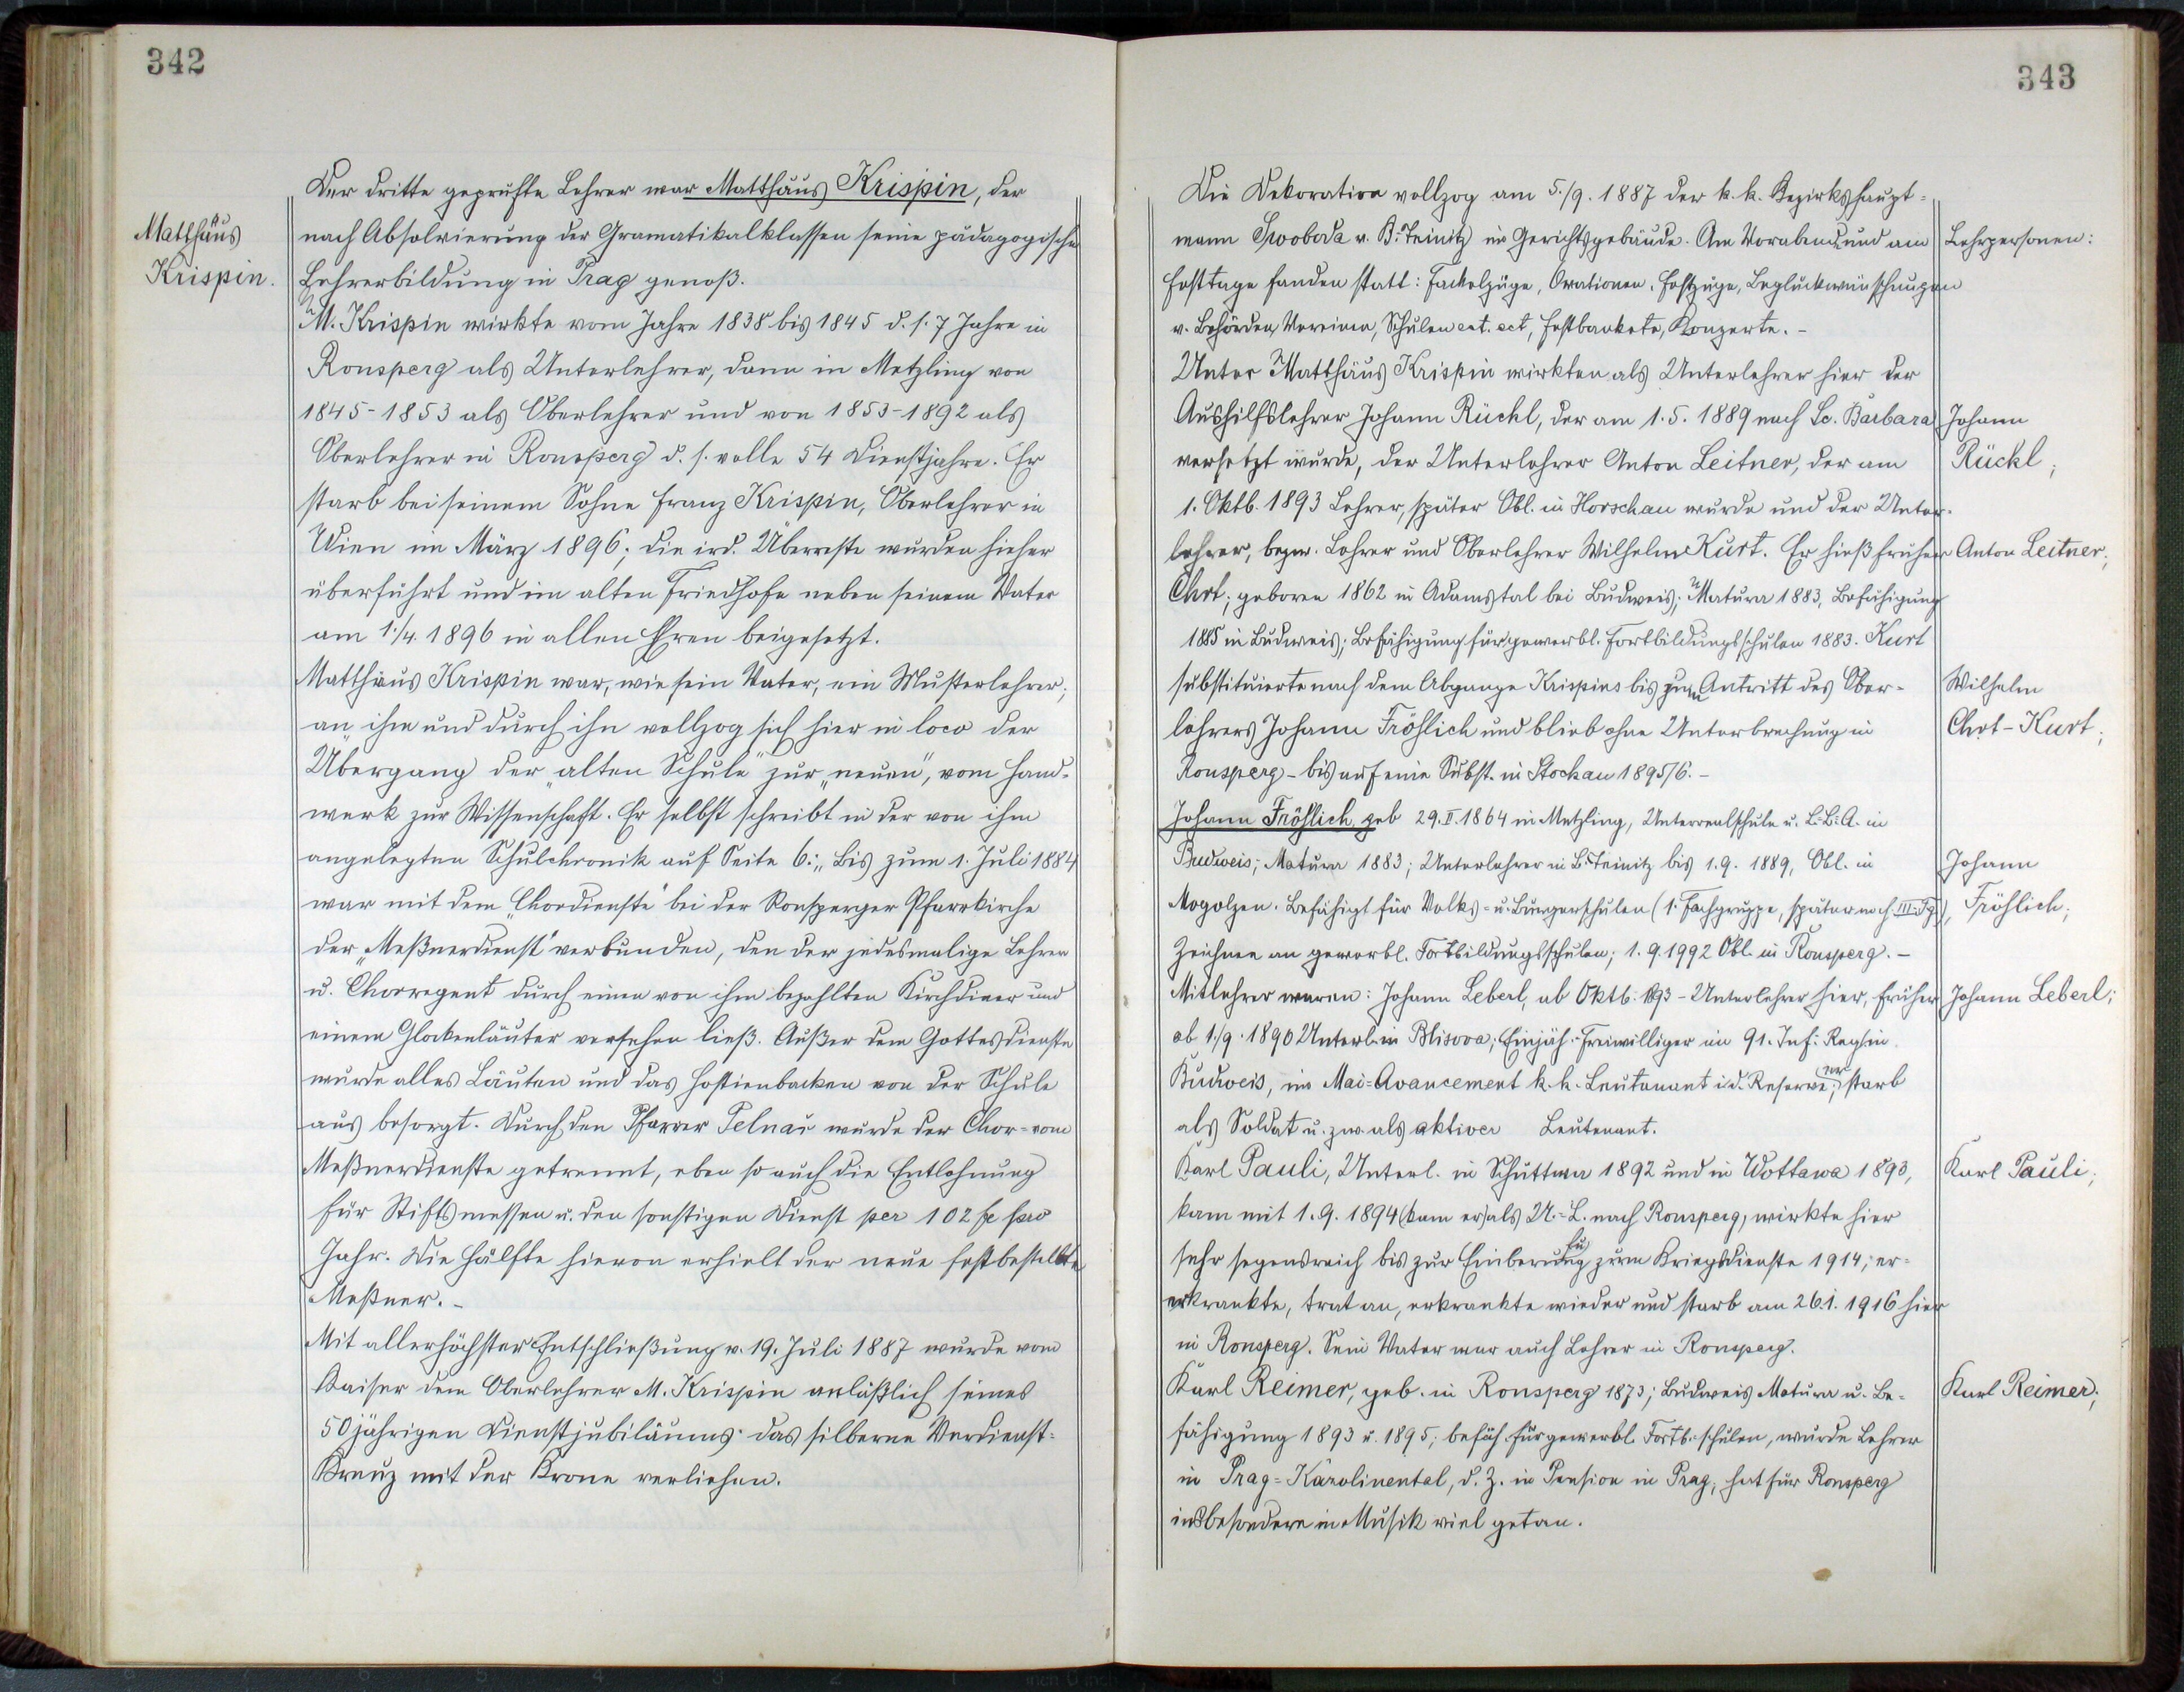 342
Der dritte geprüfte Lehrer war Matthäus Krispin, der
Matthäus
Krispin.
nach Absolvierung der Gramatikalklassen seine pädagogische
Lehrerbildung in Prag genoß.
M. Krispin wirkte vom Jahre 1838 bis 1845 d. s. 7 Jahre in
Ronsperg als Unterlehrer, dann in Metzling von
1845-1853 als Oberlehrer und von 1853-1892 als
Oberlehrer in Ronsperg d. s. volle 54 Dienstjahre. Er
starb bei seinem Sohne Franz Krispin, Oberlehrer in
Wien im März 1896; die ird. Überreste wurden hieher
überführt und im alten Friedhofe neben seinem Vater
am 1./4. 1896 in allen Ehren beigesetzt.
Matthäus Krispin war, wie sein Vater, ein Musterlehrer;
an ihm und durch ihn vollzog sich hier in loco der
Übergang der "alten Schule" zur "neuen", vom Hand-
werk zur Wissenschaft. Er selbst schreibt in der von ihm
angelegten Schulchronik auf Seite 6: "Bis zum 1. Juli 1884
war mit dem "Chordienste" bei der Ronsperger Pfarrkirche
der "Meßnerdienst" verbunden, den der jedesmalige Lehrer
u. Chorregent durch einen von ihm bezahlten Kirchdiener und
einem Glockenläuter versehen ließ. Außer dem Gottesdienste
wurde alles Läuten und das Hostienbacken von der Schule
aus besorgt. Durch den Pfarrer Pelnař wurde der Chor- vom
Meßnerdienste getrennt, eben so auch die Entlohnung
für Stiftsmessen u. den sonstigen Dienst per 102 fl pro
Jahr. Die Hälfte hievon erhielt der neue festbestellte
Meßner. -
Mit allerhöchster Entschließung v. 19. Juli 1887 wurde vom
Kaiser dem Oberlehrer M. Krispin anläßlich seines
50jährigen Dienstjubiläums das silberne Verdienst-
Kreuz mit der Krone verliehen.
343
Die Dekoration vollzog am 5./9. 1887 der k. k. Bezirkshaupt-
mann Swoboda v. B. Teinitz im Gerichtsgebäude. Am Vorabend und am
Lehrpersonen:
Festtage fanden statt: Fackelzüge, Ovationen, Festzüge, Beglückwünschungen
v. Behörden, Vereinen, Schulen ect. ect, Festbankete, Konzerte. -
Unter Matthäus Krispin wirkten als Unterlehrer hier der
Aushilfslehrer Johann Rückl, der am 1. 5. 1889 nach Sc. Barbara
Johann
Rückl;
versetzt wurde, der Unterlehrer Anton Leitner, der am
1. Oktb. 1893 Lehrer, später Obl. in Horschau wurde und der Unter-
lehrer, bezw. Lehrer und Oberlehrer Wilhelm Kurt. Er hieß früher
Anton Leitner;
Chrt; geboren 1862 in Adamstal bei Budweis; Matura 1883, Befähigung
1885 in Budweis; Befähigung für gewerbl. Fortbildungsschulen 1883. Kurt
substituierte nach dem Abgange Krispins bis zum Antritt des Ober-
Wilhelm
Chrt - Kurt;
lehrers Johann Fröhlich und blieb ohne Unterbrechung in
Ronsperg - bis auf eine Subst. in Stockau 1895/6. -
Johann Fröhlich geb 29. II. 1864 in Metzling, Unterrealschule u. L. B. A. in
Budweis; Matura 1883; Unterlehrer in B. Teinitz bis 1. 9. 1889, Obl. in
Johann
Fröhlich;
Mogolzen. Befähigt für Volks- u. Bürgerschulen (1. Fachgruppe, später noch III. Fg.),
Zeichnen an gewerbl. Fortbildungsschulen; 1. 9. 1992 Obl. in Ronsperg. -
Mitlehrer waren: Johann Leberl, ab Oktb. 1893 - Unterlehrer hier, früher
Johann Leberl;
ab 1./9. 1890 Unterl. in Blisova; Einjäh.-Freiwilliger im 91. Inf. Reg. in
Budweis, im Mai-Avancement k. k. Leutenant i. d. Reserve; er starb
als Soldat u. zw. als aktiver Leutenant.
Karl Pauli, Unterl. in Schüttwa 1892 und in Wottawa 1893,
Karl Pauli;
kam mit 1. 9. 1894 (kam er) als U.-L. nach Ronsperg, wirkte hier
sehr segensreich bis zur Einberufung zum Kriegsdienste 1914; er-
erkrankte, trat an, erkrankte wieder und starb am 26.1. 1916 hier
in Ronsperg. Sein Vater war auch Lehrer in Ronsperg.
Karl Reimer, geb. in Ronsperg 1873; Budweis Matura u. Be-
Karl Reimer;
fähigung 1893 u. 1895; befäh. für gewerbl. Fortb.-schulen, wurde Lehrer
in Prag-Karolinental, d. Z. in Pension in Prag, hat für Ronsperg
insbesondere in Musik viel getan.